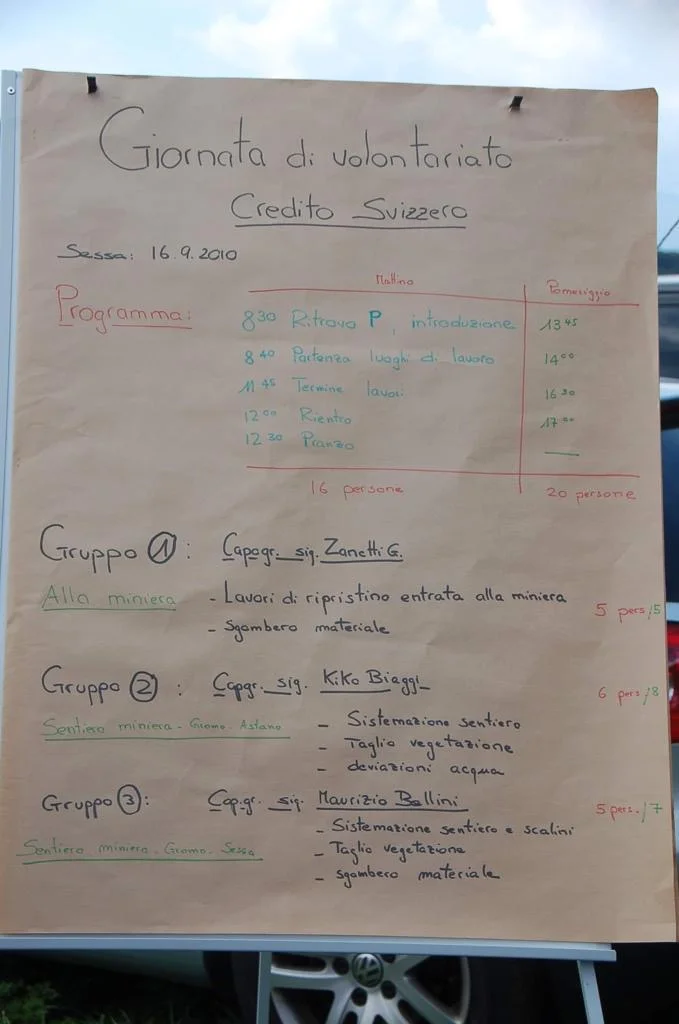 Giornata di volontariato
Credito Svizzero
Sessa: 16.9.2010
Programma:
Mattino Pomeriggio
8 30 Ritrovo P, introduzione 13 45
8 40 Partenza luoghi di lavoro 14 00
11 45 Termine lavori 16 30
12 00 Rientro 17 00
12 30 Pranzo —
16 persone 20 persone
Gruppo 1: Capogr. sig. Zanetti G.
Alla miniera - Lavori di ripristino entrata alla miniera 5 pers/5
- Sgombero materiale
Gruppo 2: Capgr. sig. Kiko Biaggi 6 pers/8
Sentiero miniera - Gromo - Astano - Sistemazione sentiero
- Taglio vegetazione
- deviazioni acqua
Gruppo 3: Cap.gr. sig. Maurizio Bellini 5 pers./7
- Sistemazione sentiero e scalini
Sentiero miniera - Gromo - Sessa - Taglio vegetazione
- sgombero materiale